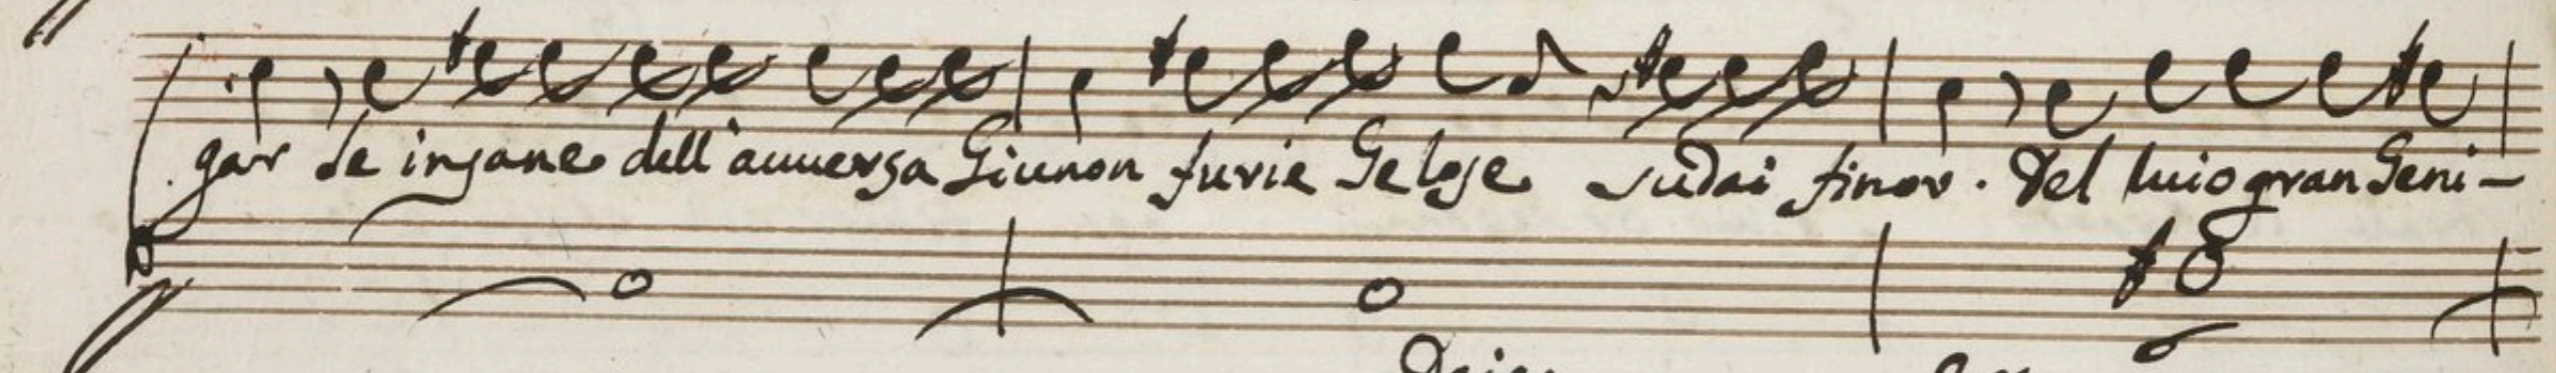 gar le insane dell'auuersa Giunon furie Gelose sudai finor. Del luio gran Geni-